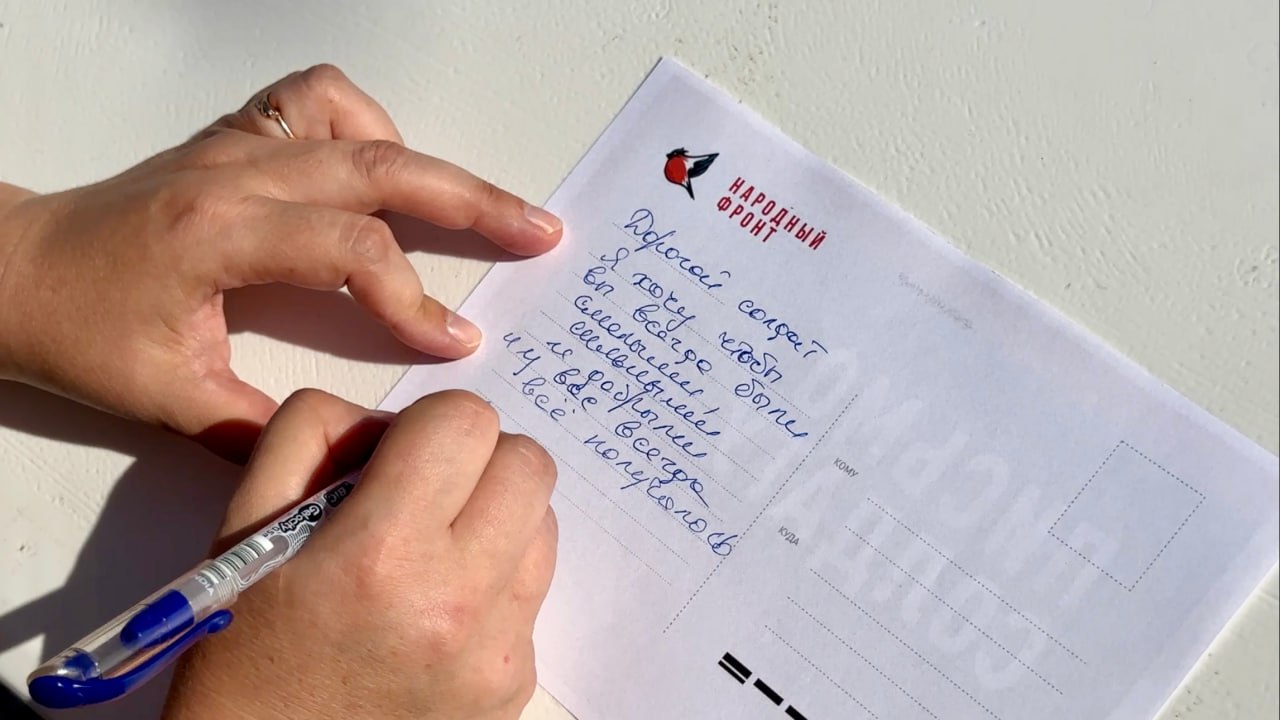 НАРОДНЫЙ
ФРОНТ
Дорогой солдат
Я хочу чтобы
вы всегда были
смелыми,
сильными
и добрыми
и у вас всегда
всё получалось
КОМУ
КУДА
ПИСЬМО
СОЛДАТУ
BIC
Gelocity